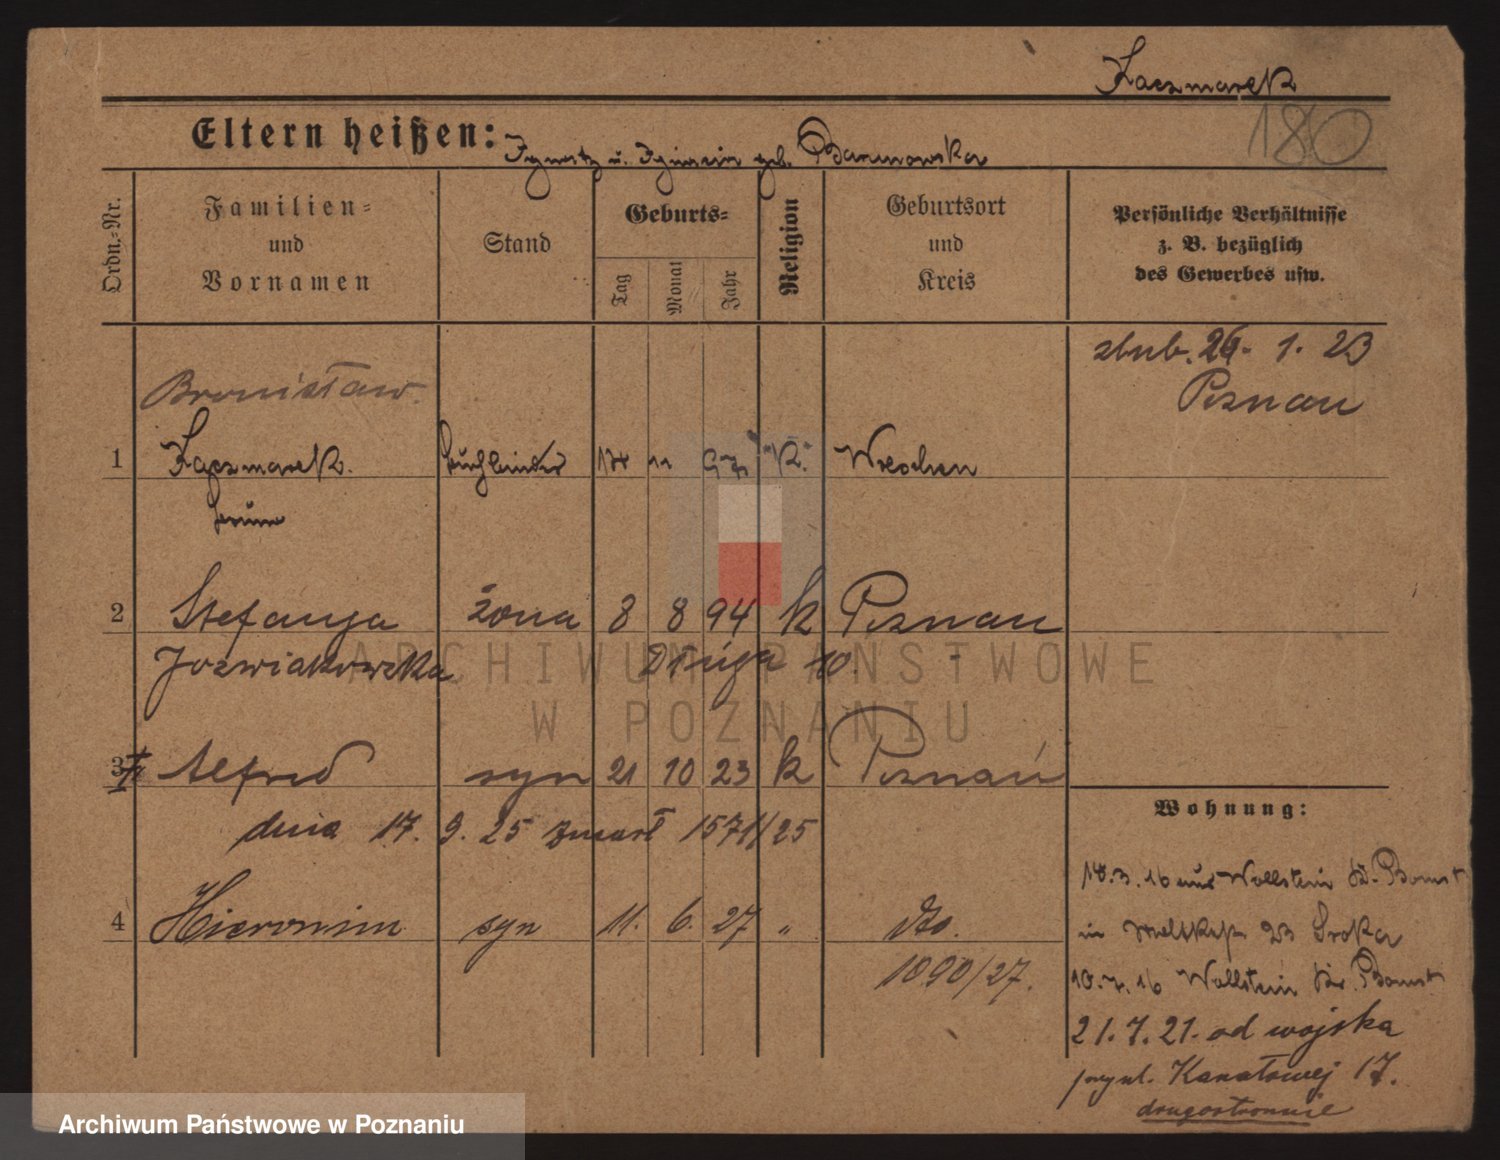 Kaczmarek
180
Eltern heißen: Ignatz u. geb. Baranowska
Ordn.-Nr.
Familien-
und
Vornamen
Stand
Geburts-
Tag
Monat
Jahr
Religion
Geburtsort
und
Kreis
Persönliche Verhältnisse
z. B. bezüglich
des Gewerbes usw.
26. 1. 23
Poznań
Bronisław.
1 Kaczmarek. Buchbinder 11 97 K. Wreschen
2 Stefanja żona 8 8 94 k Poznań
Jozwiakowska Długa 10.
3 Alfred syn 21 10 23 k Poznań
dnia 17. 9. 25 zmarł 1571/25
4 Hieronim syn 11. 6. 27 " dto.
1090/27.
Wohnung:
.3.16 aus Wollstein Kr. Bomst
in 23 Sroka
10.7.16 Wollstein Kr. Bomst
21.7.21. od wojska
przyb. Kanałowej 17.
drugostronnie
ARCHIWUM PAŃSTWOWE
W POZNANIU
Archiwum Państwowe w Poznaniu